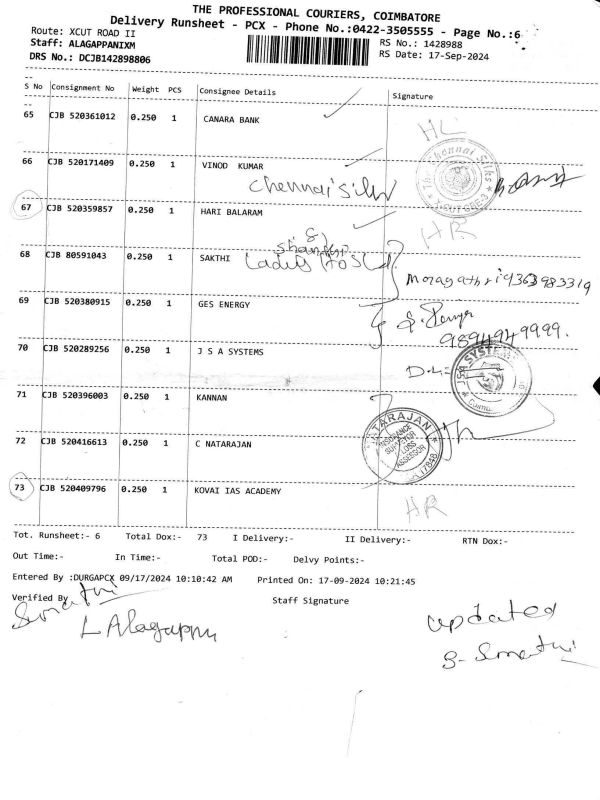 THE PROFESSIONAL COURIERS, COIMBATORE
Delivery Runsheet - PCX - Phone No.:0422-3505555 - Page No.:6
Route: XCUT ROAD II
RS No.: 1428988
Staff: ALAGAPPANIXM
RS Date: 17-Sep-2024
DRS No.: DCJB142898806
S No Consignment No Weight PCS Consignee Details Signature
65 CJB 520361012 0.250 1 CANARA BANK
HL
66 CJB 520171409 0.250 1 VINOD KUMAR
The Chennai Silks
67 CJB 520359857 0.250 1 HARI BALARAM
HR
68 CJB 80591043 0.250 1 SAKTHI
Ladies
9363983319
69 CJB 520380915 0.250 1 GES ENERGY
9894949999.
70 CJB 520289256 0.250 1 J S A SYSTEMS
JSA SYSTEM
71 CJB 520396003 0.250 1 KANNAN
72 CJB 520416613 0.250 1 C NATARAJAN
NATARAJAN
INSURANCE
SURVEYOR
LOSS
ASSESSOR
73 CJB 520409796 0.250 1 KOVAI IAS ACADEMY
HR
Tot. Runsheet:- 6 Total Dox:- 73 I Delivery:- II Delivery:- RTN Dox:-
Out Time:- In Time:- Total POD:- Delvy Points:-
Entered By :DURGAPCX 09/17/2024 10:10:42 AM Printed On: 17-09-2024 10:21:45
Verified By Staff Signature
L Alagappn
updated